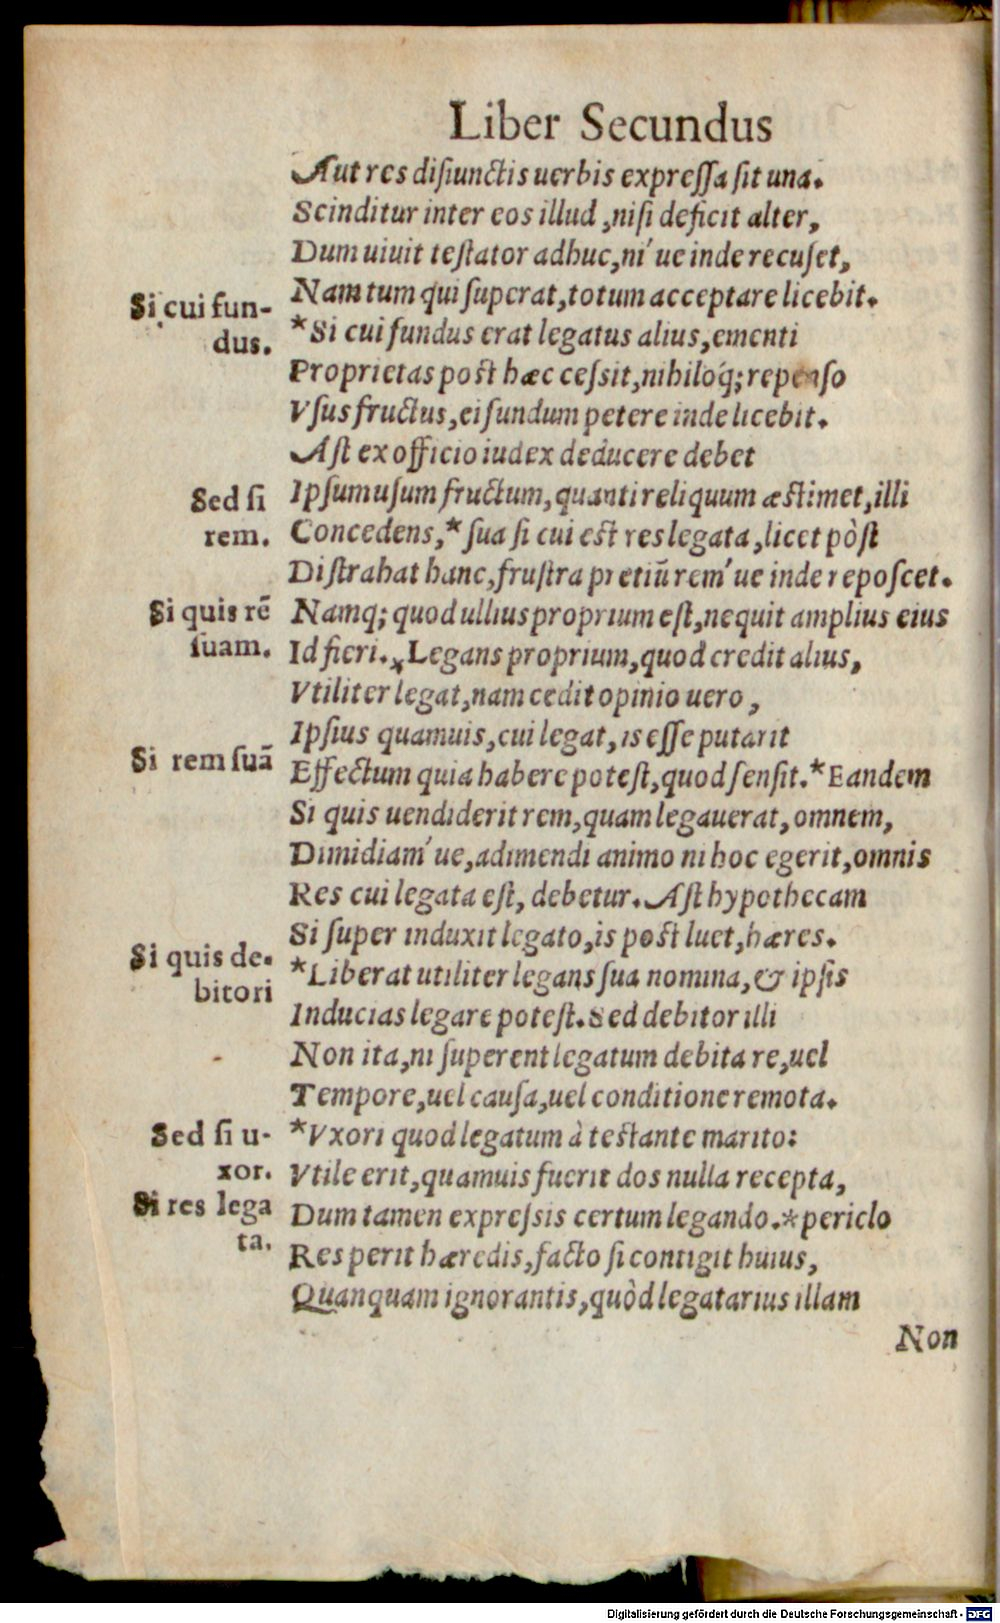 Liber Secundus
Aut res disiunctis uerbis expreſſa ſit una.
Scinditur inter eos illud, niſi deficit alter,
Dum uiuit teſtator adhuc, ni'ue inde recuſet,
Nam tum qui ſuperat, totum acceptare licebit.
Si cui fun-
dus.
*Si cui fundus erat legatus alius, ementi
Proprietas poſt hæc ceſsit, nihiloq́; repenſo
Vſus fructus, ei fundum petere inde licebit.
Aſt ex officio iudex deducere debet
Sed ſi
rem.
Ipſum uſum fructum, quanti reliquum æſtimet, illi
Concedens, * ſua ſi cui eſt res legata, licet pòſt
Diſtrahat hanc, fruſtra pretiũ rem'ue inde repoſcet.
Si quis rẽ
ſuam.
Namq; quod ullius proprium eſt, nequit amplius eius
Id fieri. * Legans proprium, quod credit alius,
Vtiliter legat, nam cedit opinio uero,
Ipſius quamuis, cui legat, is eſſe putarit
Si rem ſuã
Effectum quia habere poteſt, quod ſenſit. * Eandem
Si quis uendiderit rem, quam legauerat, omnem,
Dimidiam'ue, adimendi animo ni hoc egerit, omnis
Res cui legata eſt, debetur. Aſt hypothecam
Si ſuper induxit legato, is poſt luet, hæres.
Si quis de-
bitori
*Liberat utiliter legans ſua nomina, & ipſis
Inducias legare poteſt. Sed debitor illi
Non ita, ni ſuperent legatum debita re, uel
Tempore, uel cauſa, uel conditione remota.
Sed ſi u-
xor.
*Vxori quod legatum à teſtante marito:
Vtile erit, quamuis fuerit dos nulla recepta,
Si res lega
ta.
Dum tamen expreſsis certum legando. * periclo
Res perit hæredis, facto ſi contigit huius,
Quanquam ignorantis, quòd legatarius illam
Non
Digitalisierung gefördert durch die Deutsche Forschungsgemeinschaft - DFG